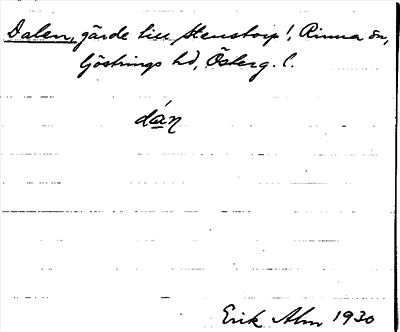 Dalen, gärde till Stenstorp!, Rinna sn,
Göstrings hd, Österg. l.
dán
Erik Alm 1930